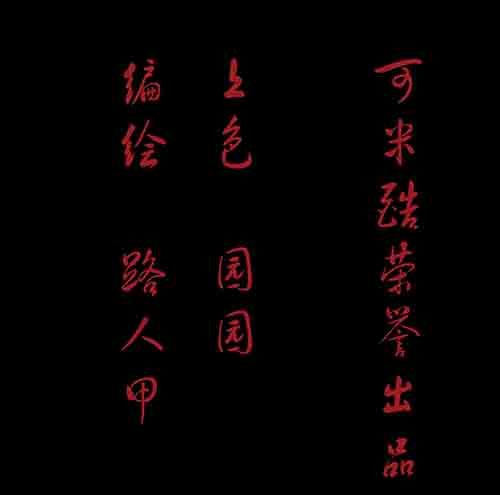 可米酷荣誉出品
上色 园园
编绘 路人甲